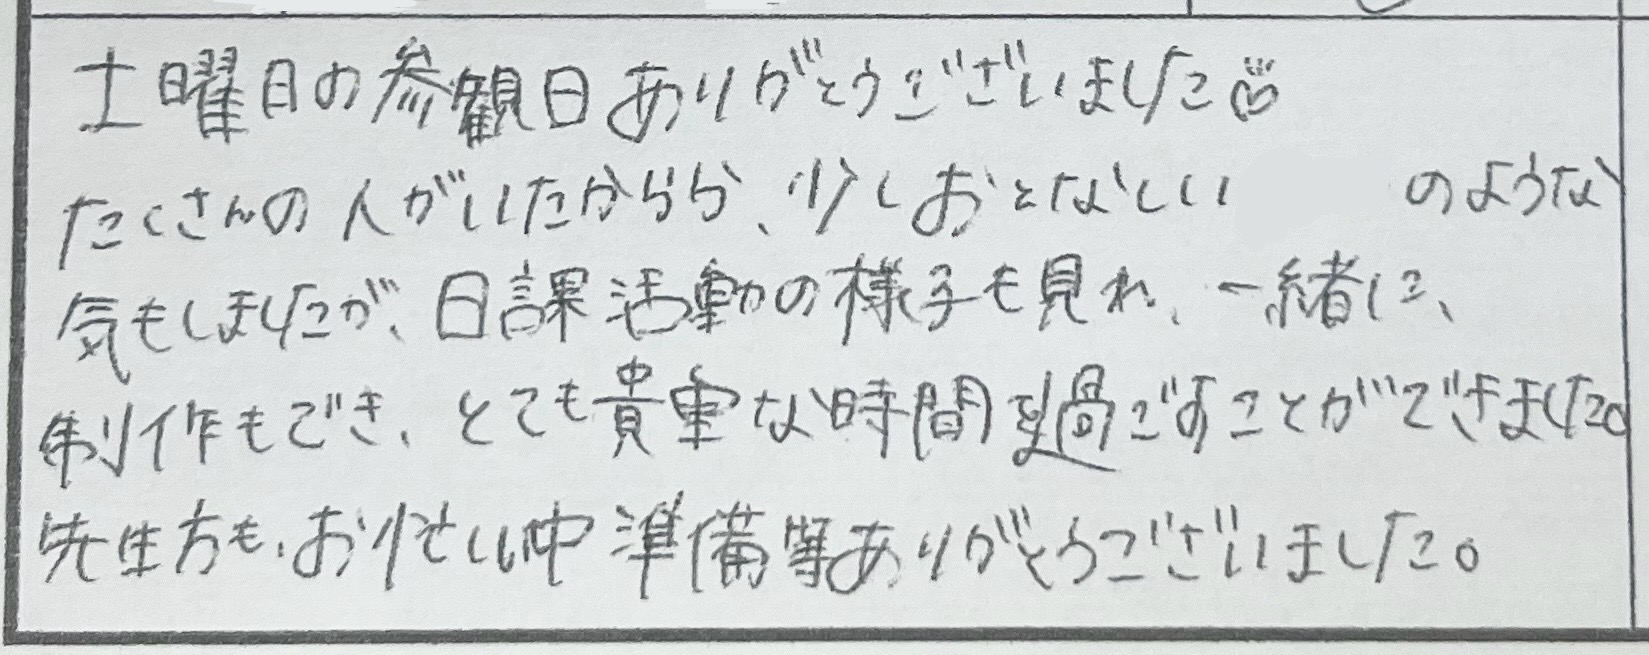 土曜日の参観日ありがとうございました♡
たくさんの人がいたからか、少しおとなしい のような
気もしましたが、日課活動の様子も見れ、一緒に、
制作もでき、とても貴重な時間を過ごすことができました。
先生方も、お忙しい中準備等ありがとうございました。